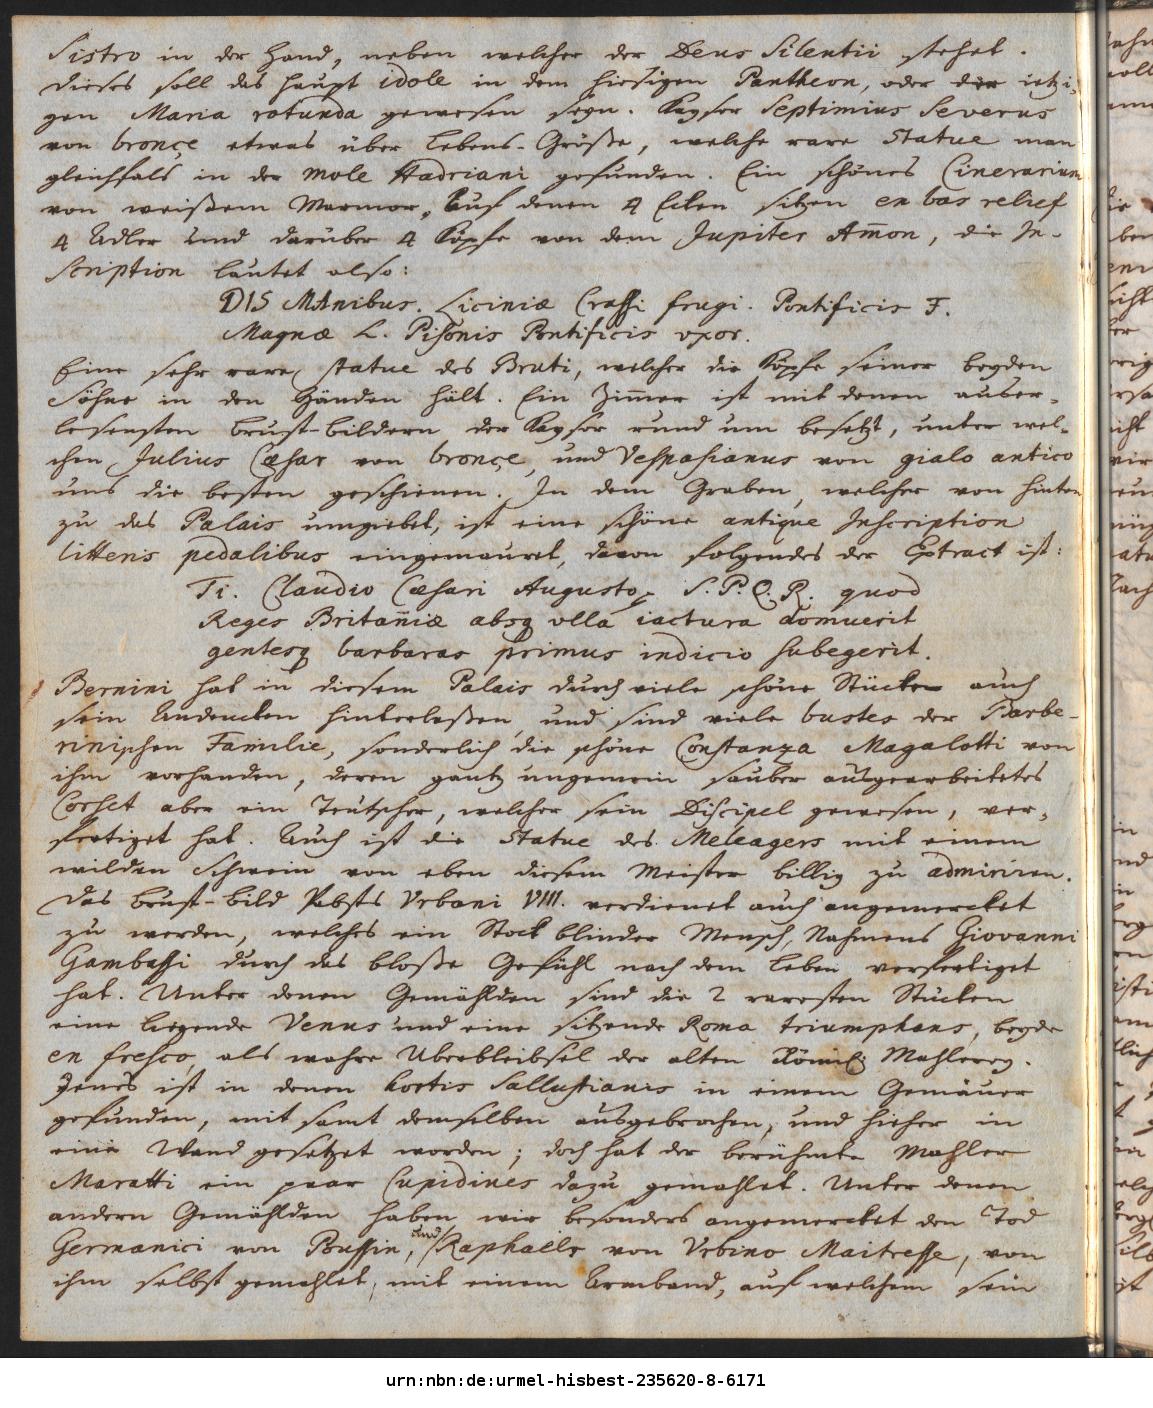 Sistro in der Hand, neben welcher der Deus Silentii stehet.
Dieses soll das Haupt idole in dem hiesigen Pantheon, oder der ietzi-
gen Maria rotunda gewesen seyn. Kayser Septimius Severus
von bronçe etwas über Lebens-Größe, welche rare Statue man
gleichfals in der Mole Hadriani gefunden. Ein schönes Cinerarium
von weißem Marmor, auf denen 4 Ecken sitzen en bas relief
4 Adler und darüber 4 Köpfe von dem Jupiter Am̄on, die In-
scription lautet also:
DIS MAnibus. Liciniæ Crassi frugi. Pontificis F.
Magnæ L. Pisonis Pontificis vxor.
Eine sehr rare statue des Bruti, welcher die Köpfe seiner beyden
Söhne in den Händen hält. Ein Zim̄er ist mit denen auser-
lesensten brust-bildern der Kayser rund um besetzt, unter wel-
chen Julius Cæsar von bronçe, und Vespasianus von gialo antico
uns die besten geschienen. In dem Graben, welcher von hinten
zu das Palais umgiebet, ist eine schöne antique Inscription
litteris pedalibus eingemauret, davon folgendes der Extract ist:
Ti. Claudio Cæsari Augusto, S. P. Q. R. quod
Reges Britan̄iæ absq vlla iactura domuerit
gentesq barbaras primus indicio subegerit.
Bernini hat in diesem Palais durch viele schöne Stücke auch
sein Andencken hinterlaßen, und sind viele bustes der Barbe-
rinischen Familie, sonderlich die schöne Constanza Magalotti von
ihm vorhanden, deren gantz ungemein sauber ausgearbeitetes
Corset aber ein Teutscher, welcher sein Discipel gewesen, ver-
fertiget hat. Auch ist die Statue des Meleagers mit einem
wilden Schwein von eben diesem Meister billig zu admiriren.
Das brust-bild Pabsts Vrbani VIII. verdienet auch angemercket
zu werden, welches ein Stock blinder Mensch, Nahmens Giovanni
Gambassi durch das bloße Gefühl nach dem Leben verfertiget
hat. Unter denen Gemählden sind die 2 raresten Stücken
eine liegende Venus und eine sitzende Roma triumphans, beyde
en fresco, als wahre Uberbleibsel der alten Römis. Mahlerey.
Jenes ist in denen hortis Sallustianis in einem Gemäuer
gefunden, mit samt demselben ausgebrochen, und hieher in
eine Wand gesetzet worden; doch hat der berühmte Mahler
Maratti ein paar Cupidines dazu gemahlet. Unter denen
andern Gemählden haben wir besonders angemercket den Tod
Germanici von Poussin, und Raphaels von Vrbino Maitresse, von
ihm selbst gemahlet, mit einem Armband, auf welchem sein
urn:nbn:de:urmel-hisbest-235620-8-6171